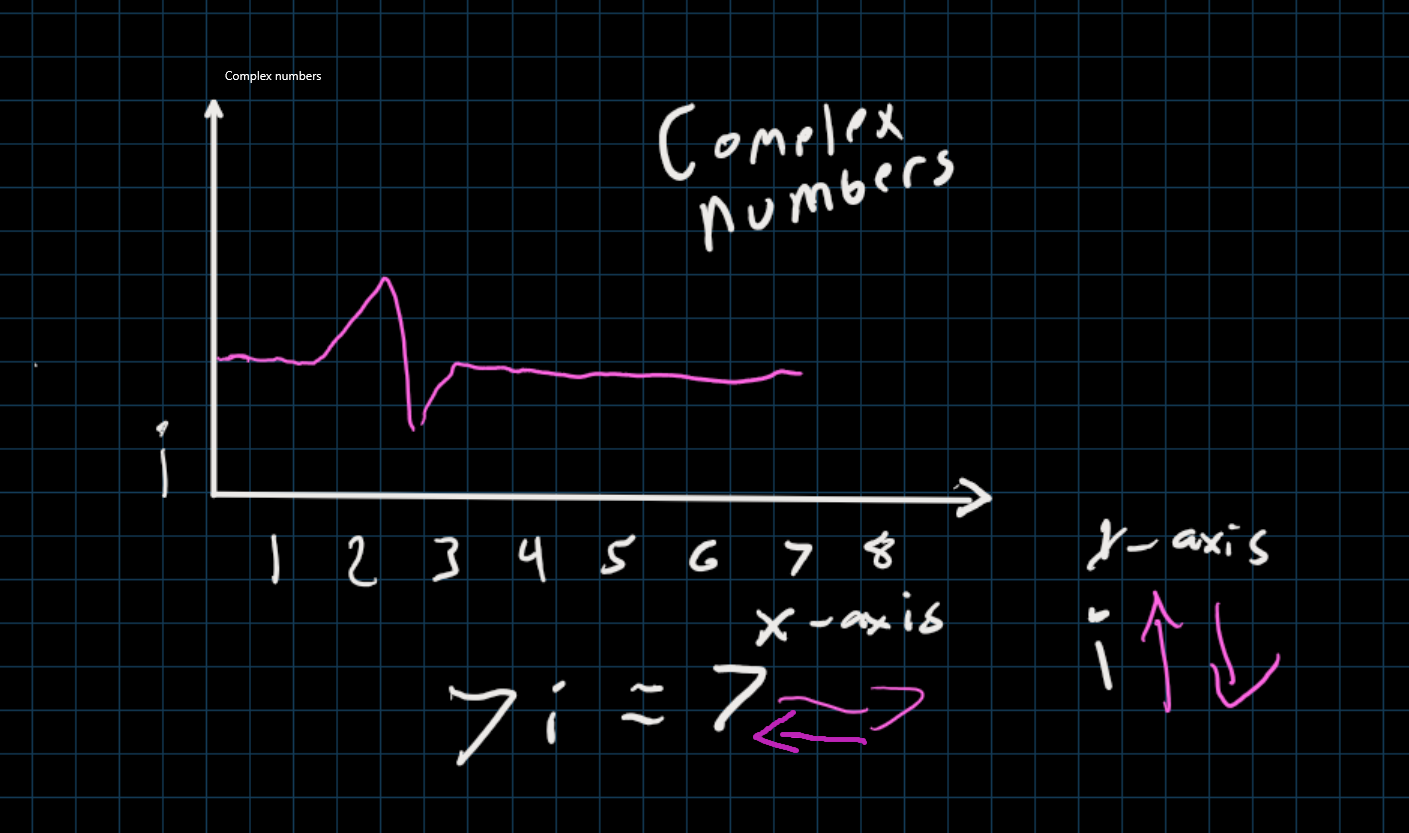 Complex numbers
Complex
numbers
i
1 2 3 4 5 6 7 8
y-axis
x-axis
i
7i = 7